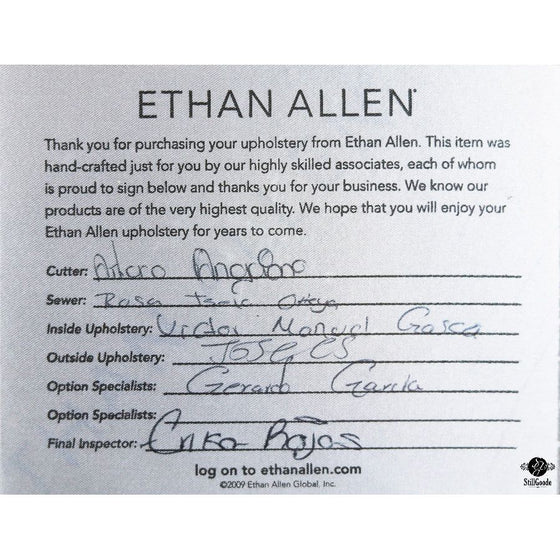 ETHAN ALLEN®
Thank you for purchasing your upholstery from Ethan Allen. This item was
hand-crafted just for you by our highly skilled associates, each of whom
is proud to sign below and thanks you for your business. We know our
products are of the very highest quality. We hope that you will enjoy your
Ethan Allen upholstery for years to come.
Cutter: Arturo
Sewer: Rosa Ortega
Inside Upholstery: Victor Manuel Gasca
Outside Upholstery: JOSE
Option Specialists: Gerardo Garcia
Option Specialists:
Final Inspector: Erika Rojas
log on to ethanallen.com
©2009 Ethan Allen Global, Inc.
StillGoode